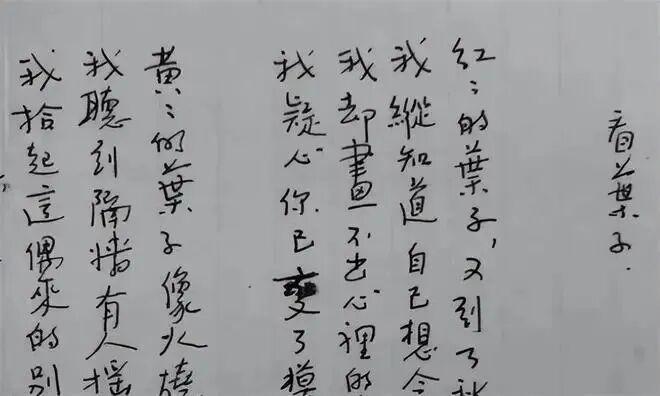 看葉子.
紅〻的葉子,又到了秋
我縱知道自己想念
我却畫不出心裡的
我疑心你已變了模
黃〻的葉子像火燒
我聽到隔墻有人搖
我拾起這偶來的別